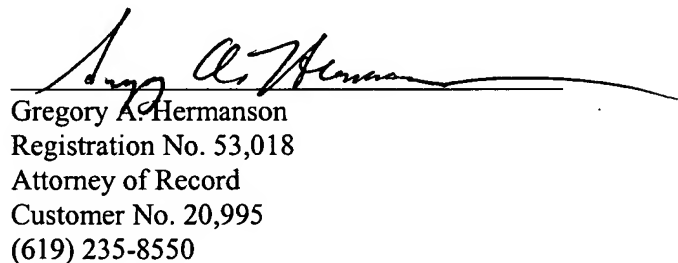 Gregory A. Hermanson
Registration No. 53,018
Attorney of Record
Customer No. 20,995
(619) 235-8550